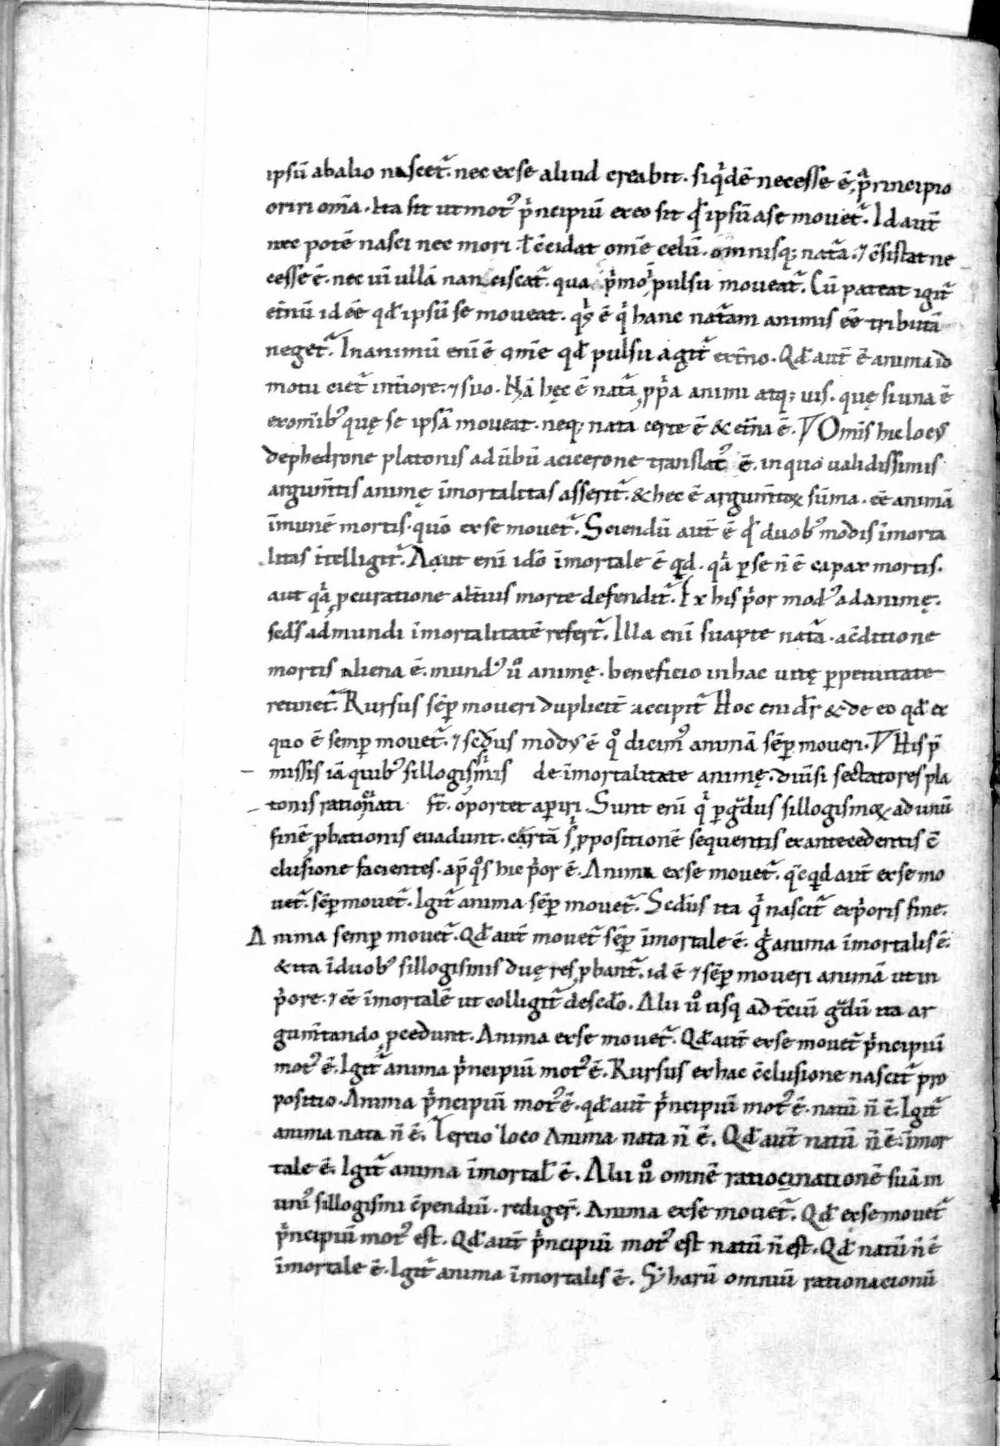 ipsū abalio nascet᷑. nec exse aliud creabit. siq̇dē necesse ē aṗrincipio
oriri om̄a. Ita fit ut mot᾿ ṗncipiū exeo sit qđ ipsū ase mouet᷑. Id aut̄
nec potē nasci nec mori. ł c̄cidat om̄e celū. omnisq; nat᷑a. ⁊ c̄sistat ne
cesse ē. nec uī ullā nanciscat᷑. qua ṗmo īpulsu moueat᷑. Cū pateat igit᷑
et̄nū id eē qđ ipsū se moueat. qṡ ē q̇ hanc nat᷑am animis eē tributā
neget᷑. Inanimū enī ē om̄e qđ pulsu agit᷑ ext̄no. Qđ aut̄ ē anima id
motu ciet᷑ int̄iore. ⁊ suo. Nā hęc ē nat᷑a ꝓṗa animi atq; uis. quę si una ē
exom̄ib᾿ quę se ipsā moueat. neq; nata certe ē & et̄na ē. Om̄is hic locꝰ
dephedrone platonis ad ūbū acicerone translat᾿ ē. inquo ualidissimis
argum̄tis animę īmortalitas asserit᷑. & hec ē argum̄toꝝ sūma. eē animā
īmunē mortis. quō exse mouet᷑. Sciendū aut̄ ē qđ duob᾿ modis īmorta
litas īt̄elligit᷑. Aaut enī idō īmortale ē qđ. q̇a ꝑse n̄ ē capax mortis.
aut q̇a ꝓcuratione alt̄ius morte defendit᷑. Ex his ṗor mod᾿ adanimę.
sedꝰ admundi īmortalitatē refert᷑. Illa enī suapte nat᷑a. ac̄ditione
mortis aliena ē. mund᾿ u̇ animę. beneficio inhac uitę ꝑpetuitate
retinet᷑. Rursus sēꝑ moueri duplicit̄ accipit᷑ Hoc enī dr̄ & de eo qđ ex
quo ē semꝑ mouet᷑. ⁊ sedūs modꝰ ē q̊ dicim᾿ animā sēꝑ moueri. His p̄
missis iā quib᾿ sillogismis de īmortalitate animę. diūsi sectatores pla
tonis rationati st̄. oportet aꝑiri. Sunt enī q̇ ꝑg᷑dus sillogismoꝝ. ad unū
finē ꝓbationis euadunt. cartā s ꝓpositionē sequentis exantecedentis c̄
clusione facientes. ap̄ q̊s hic ṗor ē. Anima exse mouet᷑. q̇cq̇d aut̄ exse mo
uet᷑. sēꝑ mouet᷑. Igit᷑ anima sēꝑ mouet᷑. Secd̄us ita q̇ nascit᷑ exṗoris fine.
Anima semꝑ mouet᷑. Qđ aut̄ mouet᷑ sēꝑ īmortale ē. g̊ anima īmortalis ē.
& ita īduob᾿ sillogismis duę res ꝓbant᷑. id ē ⁊ sēꝑ moueri animā ut in
ṗore. ⁊ eē īmortalē ut colligit᷑ desedō. Alii u̇ usq ad t̄ciū g᷑dū ita ar
gum̄tando ꝓcedunt. Anima exse mouet᷑. Qđ aut̄ exse mouet᷑ ṗncipiū
mot᾿ ē. Igit᷑ anima ṗncipiū mot᾿ ē. Rursus exhac c̄clusione nascit᷑ pro
positio. Anima ṗncipiū mot᾿ ē. qđ aut̄ ṗncipiū mot᾿ ē. natū n̄ ē. Igit᷑
anima nata n̄ ē. Tercio loco Anima nata n̄ ē. Qđ aut̄ natū n̄ ē. īmor
tale ē. Igit᷑ anima īmortal᾿ ē. Alii u̇ omnē ratiocinationē suā in
uni᾿ sillogismi c̄pendiū. rediger̄. Anima exse mouet᷑. Qđ exse mouet᷑
ṗncipiū mot᾿ est. Qđ aut̄ ṗncipiū mot᾿ est natū n̄ est. Qđ natū n̄ ē
īmortale ē. Igit᷑ anima īmortalis ē. S harū omniū rationacionū